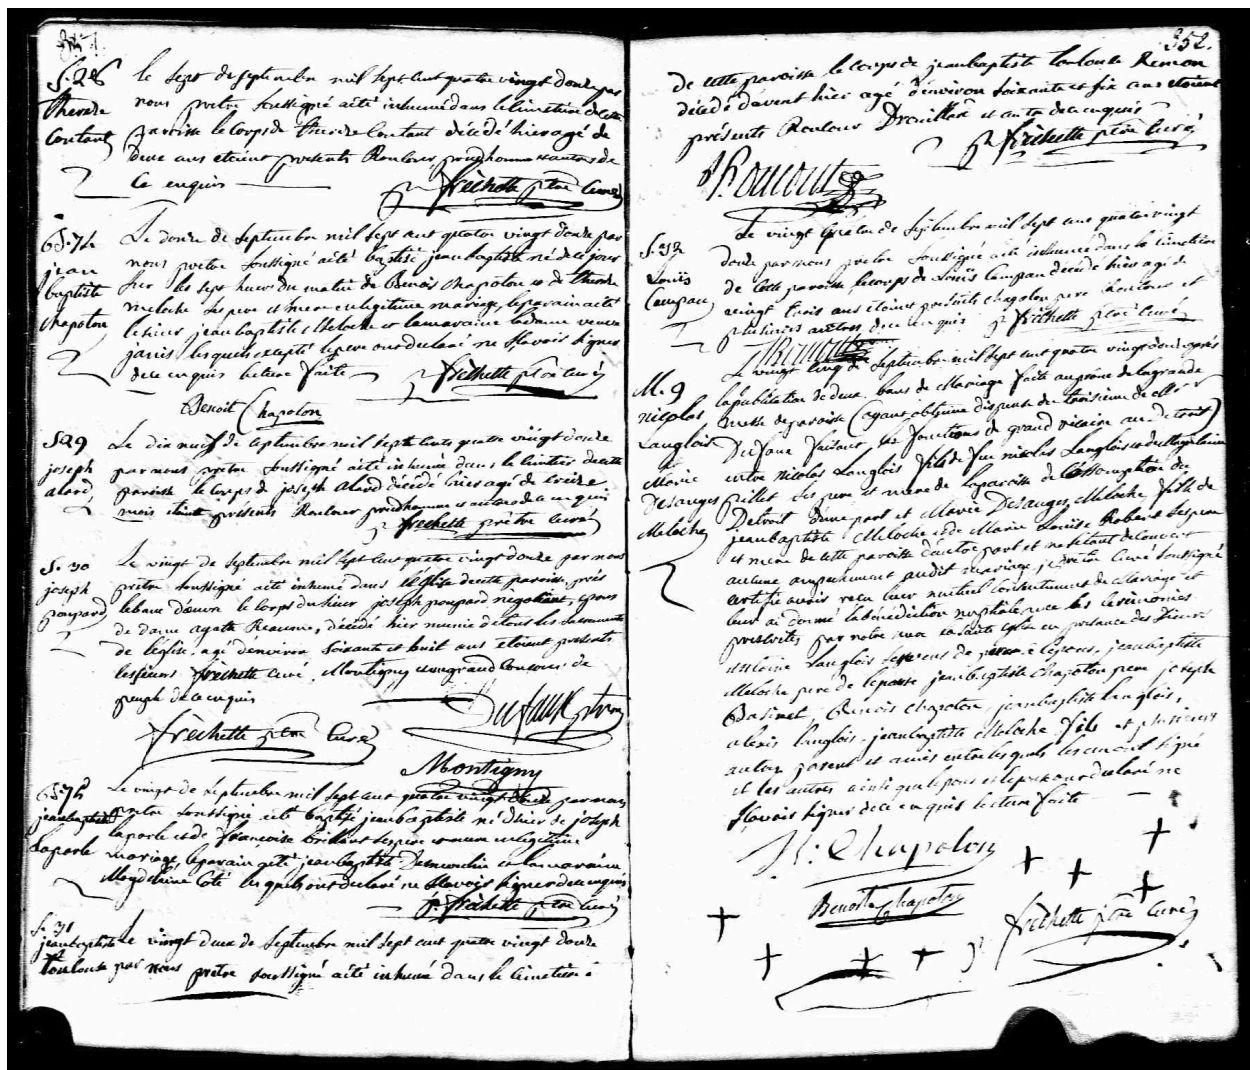 351.
S. 28
therese
Coutant
le sept de septembre mil sept cent quatre vingt douze par
nous pretre soussigné a été inhumé dans le cimetiere de cette
paroisse le corps de therese Coutant décédé hier agé de
deux ans etoient presents Rouleux prudhomme et autres de
ce enquis
fr. frechette ptre curé
B. 74
jean
baptiste
Chapoton
Le douze de septembre mil sept cent quatre vingt douze par
nous pretre soussigné a été baptisé jean baptiste né de ce jour
sur les sept heures du matin de Benois Chapoton et de therese
meloche ses pere et mere en legitime mariage, le parain a été
le sieur jean baptiste Meloche et la maraine la dame veuve
jaris lesquels excepté le pere ont declaré ne sçavoir signer
de ce enquis lecture faite
fr. frechette ptre curé
Benoit Chapoton
S 29
joseph
alard
Le dix neuf de septembre mil sept cents quatre vingt douze
par nous pretre soussigné a été inhumé dans le cimetiere de cette
paroisse le corps de joseph alard décédé hier agé de treize
mois etoient presents Rouleux prudhomme et autres de ce enquis
fr. frechette prêtre curé
S. 30
joseph
poupard
Le vingt de septembre mil sept cent quatre vingt douze par nous
pretre soussigné a été inhumé dans l'église de cette paroisse, près
le banc d'œuvre le corps du sieur joseph poupard négotiant, epoux
de dame agathe Reaume, décédé hier munie de tous les sacrements
de l'église, agé d'environ soixante et huit ans etoient presents
les sieurs frechette curé, Montigny et un grand Concours de
peuple de ce enquis
Dufaux ptre
frechette ptre curé
Montigny
B. 75
jean baptiste
Laporte
Le vingt de septembre mil sept cent quatre vingt douze par nous
pretre soussigné a été baptisé jean baptiste né d'hier de joseph
laporte et de françoise ses pere et mere en legitime
mariage, le parain a été jean baptiste Desmouchel et la maraine
Magdeleine Coté lesquels ont declaré ne sçavoir signer de ce enquis
fr. frechette ptre curé
S. 31
jean baptiste
Toulouse
Le vingt deux de septembre mil sept cent quatre vingt douze
par nous pretre soussigné a été inhumé dans le cimetiere
352.
de cette paroisse le corps de jean baptiste toulouse Remon
décédé d'avent hier agé d'environ soixante et six ans etoient
présents Rouloux Drouillard et autres de ce enquis
fr. frechette ptre curé
S. 32
Louis
Campau
Le vingt quatre de septembre mil sept cent quatre vingt
douze par nous pretre soussigné a été inhumé dans le cimetiere
de cette paroisse, le corps de Louis Campau décédé hier agé de
vingt trois ans etoient presents chapoton pere Rouloux et
plusieurs autres de ce enquis fr. frechette ptre curé
M. 9
nicolas
Langlois
&
Marie
Desanges
Meloche
Le vingt cinq de septembre mil sept cent quatre vingt douze après
la publication de deux bans de Mariage faite au prône de la grande
messe de paroisse (ayant obtenue dispense du troisieme de Mr
Dufaux faisant les fonctions de grand vicaire au detroit)
entre nicolas Langlois fils de feu nicolas Langlois et de Magdelaine
pillet ses pere et mere de la paroisse de l'assomption du
Detroit d'une part et Marie Desanges Meloche fille de
jean baptiste Meloche et de Marie Louise Robert ses pere
et mere de cette paroisse d'autre part et ne s'etant decouvert
aucune empechement audit mariage, je pretre curé soussigné
certifie avoir reçu leur mutuel consentement de Mariage et
leur ai donné la bénédiction nuptiale avec les cérémonies
prescrites par notre mere la sainte eglise en presence des sieurs
antoine Langlois de l'epoux, jean baptiste
Meloche pere de l'epouse jean baptiste chapoton pere joseph
Basinet, Benois chapoton, jean baptiste langlois,
alexis langlois, jean baptiste Meloche fils et plusieurs
autres parent et amies entre lesquels les uns ont signé
et les autres ainsi que l'epoux et l'epouse ont declaré ne
sçavoir signer de ce enquis lecture faite
J. Bt. Chapoton
Benoit Chapoton
fr. frechette ptre curé